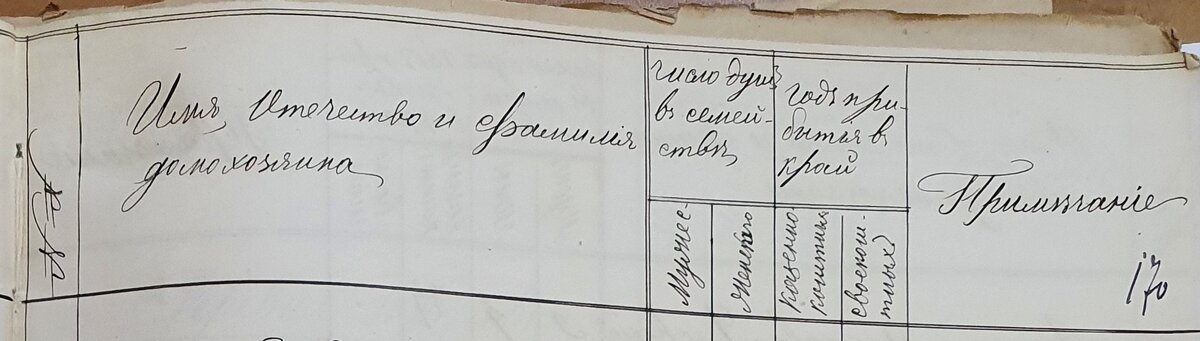 №№
Имя, Отчество и фамилія
домохозяина
число душъ
въ семей-
ствѣ
Мужес-
Женскаго
годъ при-
бытія въ
край
казенно-
коштныхъ
своекош-
тныхъ
Примѣчаніе
170